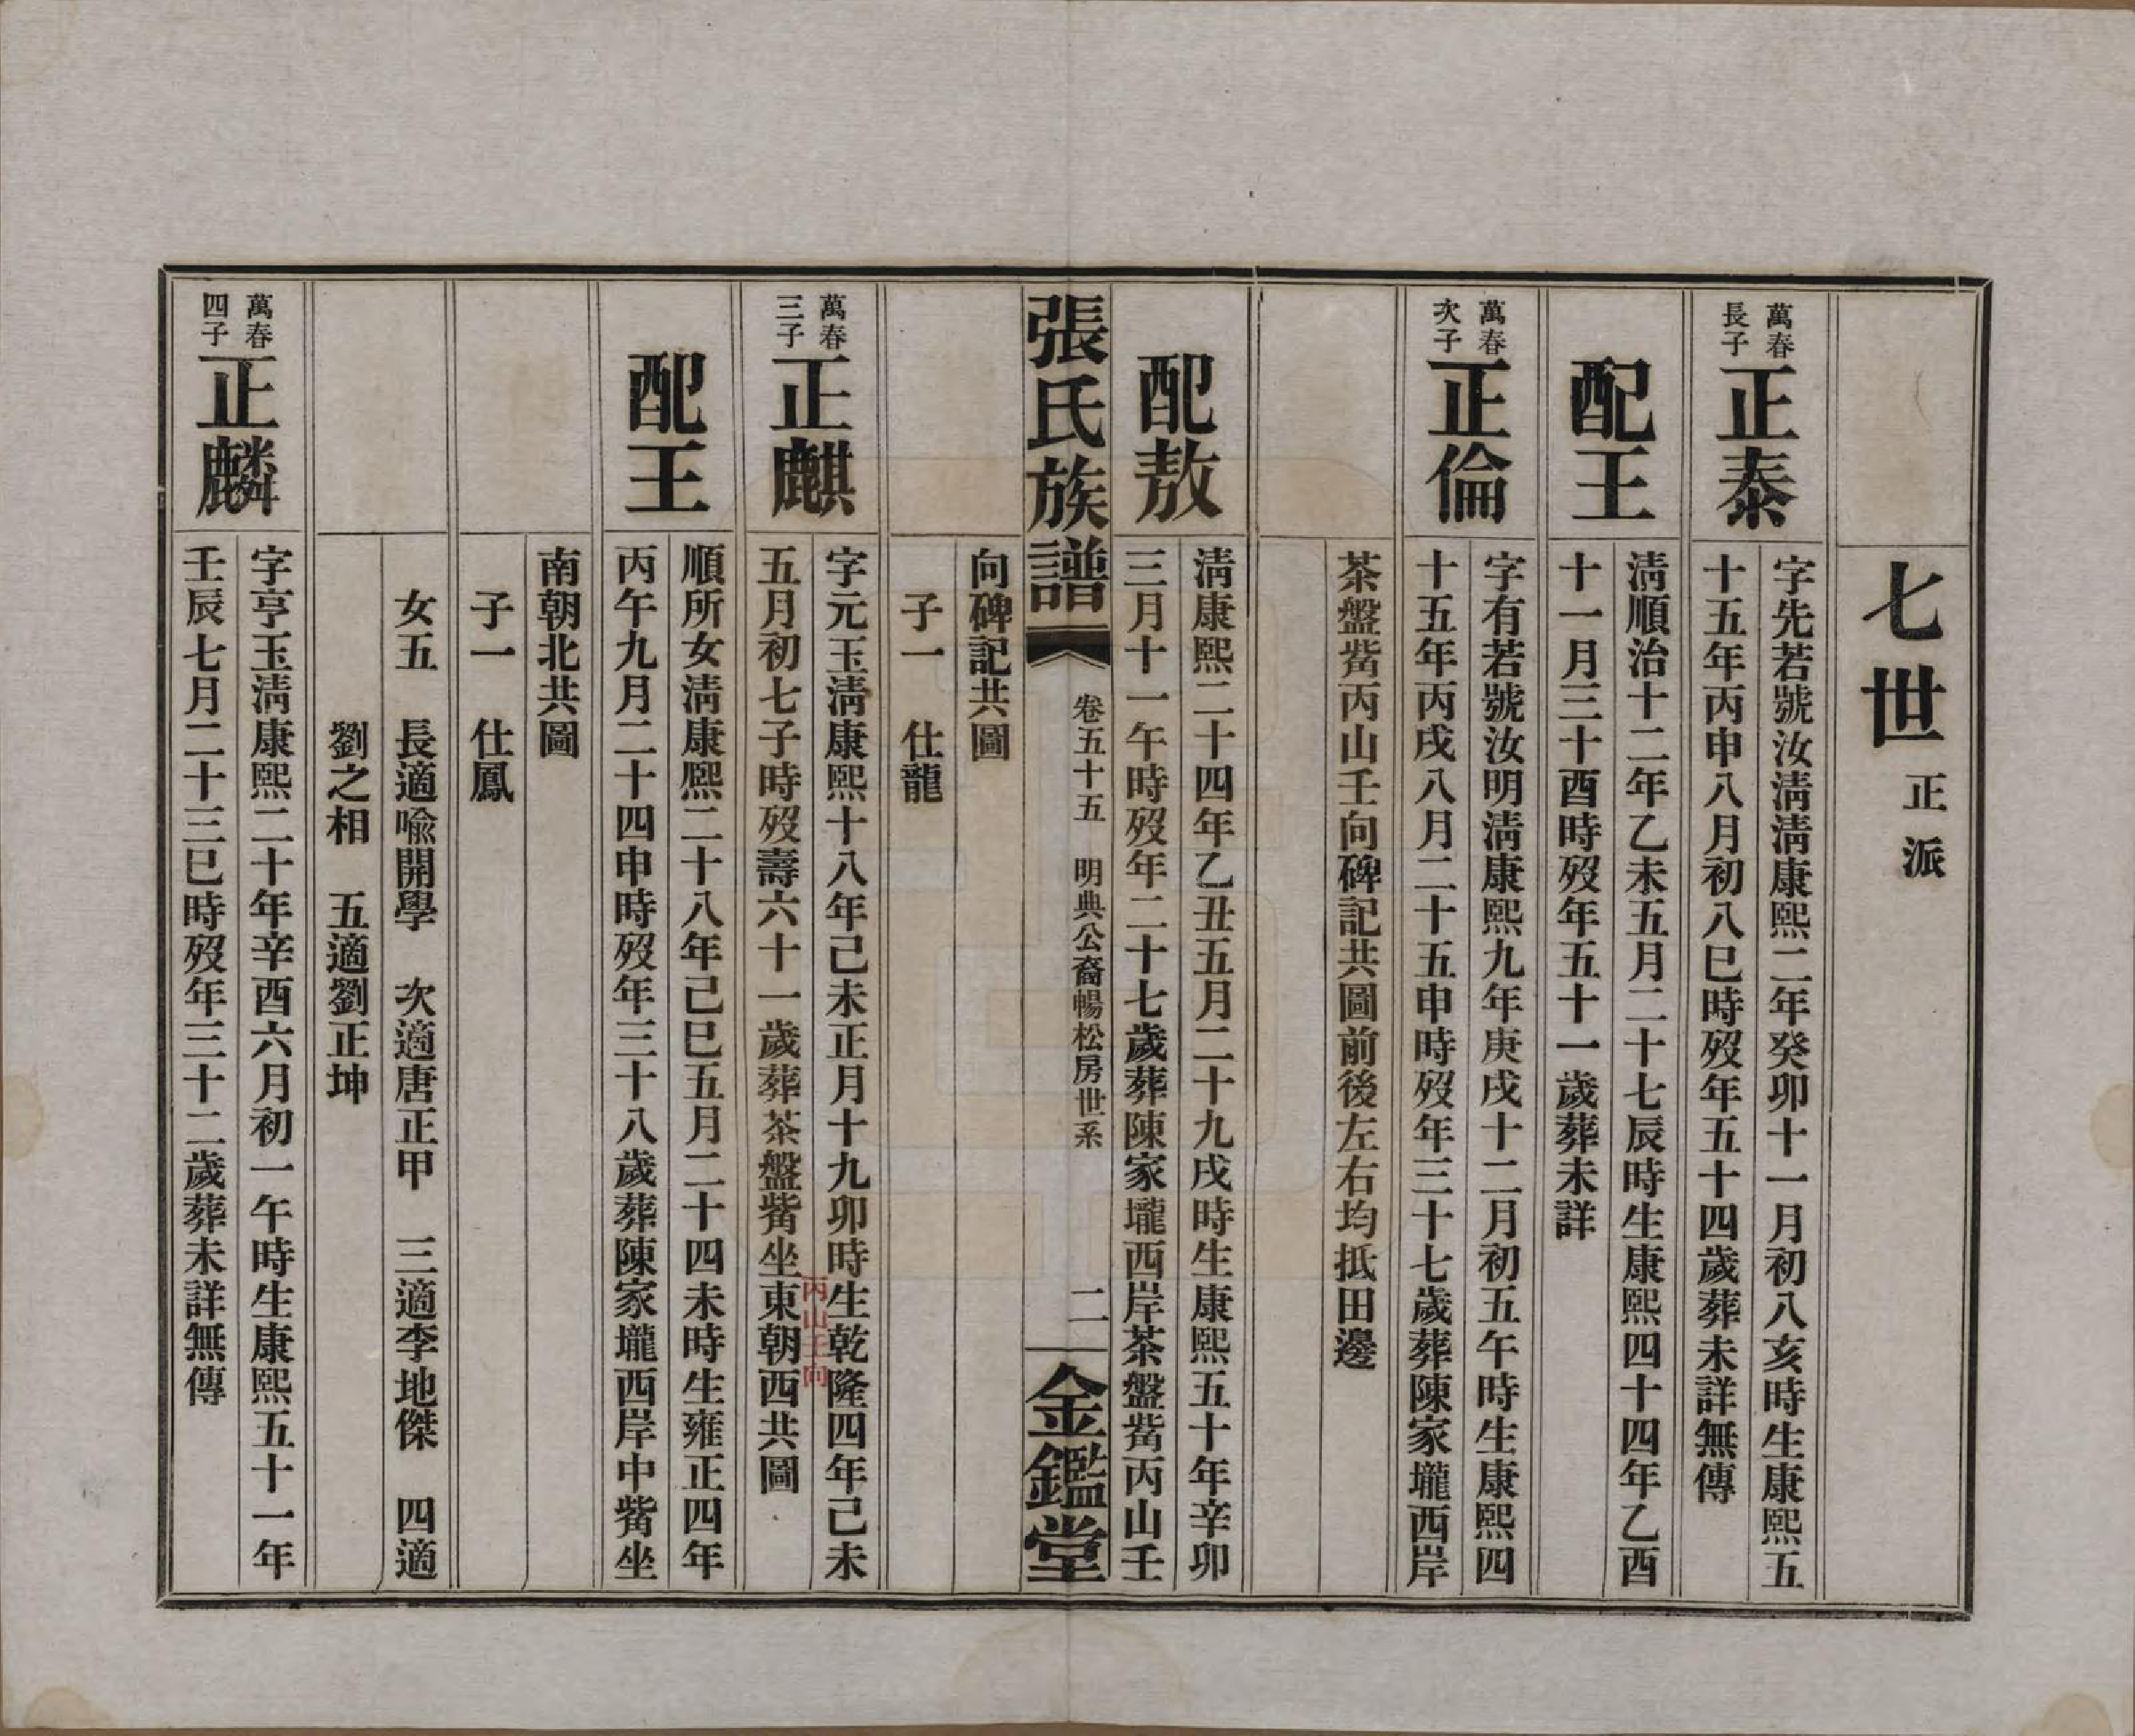 七世 正派
萬春
長子
正泰
字先若號汝淸淸康熙二年癸卯十一月初八亥時生康熙五
十五年丙申八月初八巳時歿年五十四歲葬未詳無傳
配王
淸順治十二年乙未五月二十七辰時生康熙四十四年乙酉
十一月三十酉時歿年五十一歲葬未詳
萬春
次子
正倫
字有若號汝明淸康熙九年庚戌十二月初五午時生康熙四
十五年丙戌八月二十五申時歿年三十七歲葬陳家壠西岸
茶盤觜丙山壬向碑記共圖前後左右均抵田邊
配敖
淸康熙二十四年乙丑五月二十九戌時生康熙五十年辛卯
三月十一午時歿年二十七歲葬陳家壠西岸茶盤觜丙山壬
張氏族譜 卷五十五 明典公裔暢松房世系 二 金鑑堂
向碑記共圖
子一 仕龍
萬春
三子
正麒
字元玉淸康熙十八年己未正月十九卯時生乾隆四年己未
丙山壬向
五月初七子時歿壽六十一歲葬茶盤觜坐東朝西共圖
配王
順所女淸康熙二十八年己巳五月二十四未時生雍正四年
丙午九月二十四申時歿年三十八歲葬陳家壠西岸中觜坐
南朝北共圖
子一 仕鳳
女五 長適喻開學 次適唐正甲 三適李地傑 四適
劉之相 五適劉正坤
萬春
四子
正麟
字亨玉淸康熙二十年辛酉六月初一午時生康熙五十一年
壬辰七月二十三巳時歿年三十二歲葬未詳無傳